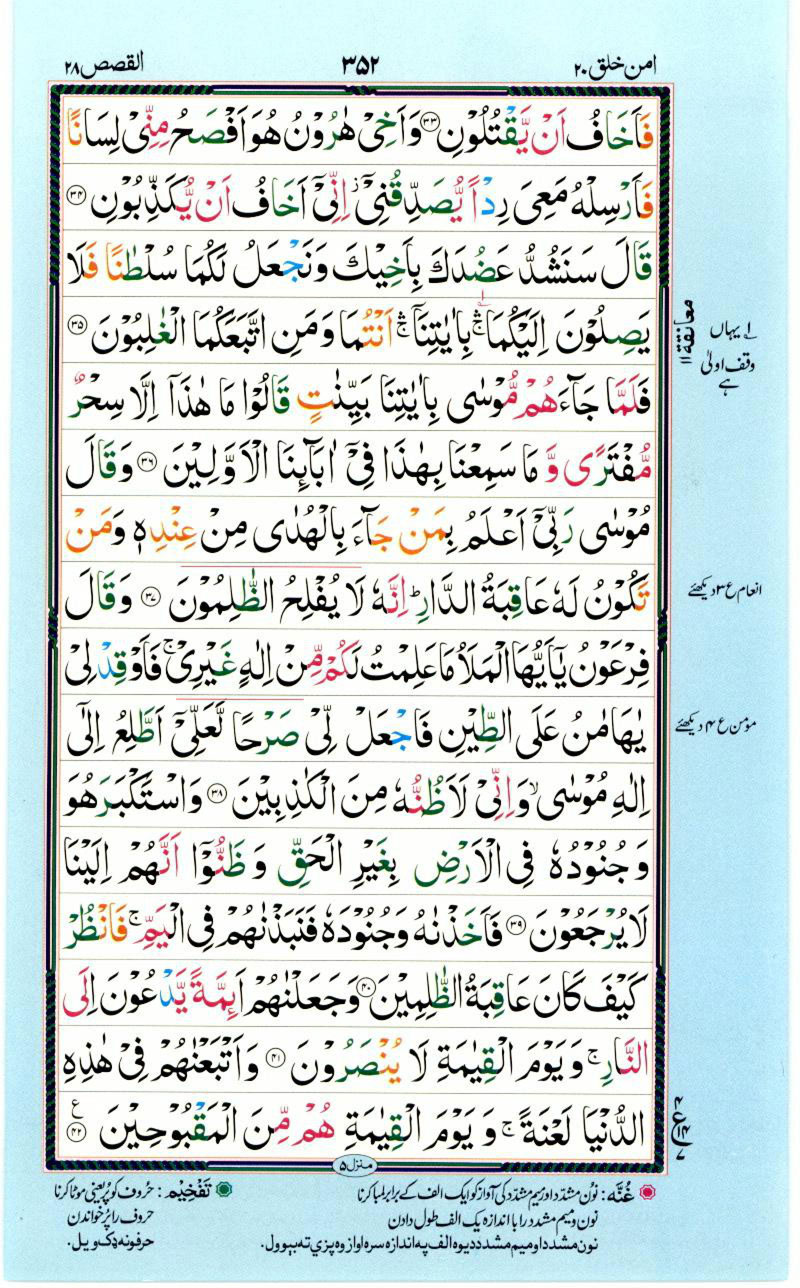 امن خلق ۲۰ ۳۵۲ القصص ۲۸
فَاَخَافُ اَنۡ يَّقۡتُلُوۡنِ ﴿۳۳﴾ وَاَخِىۡ هٰرُوۡنُ هُوَ اَفۡصَحُ مِنِّىۡ لِسَانًا
فَاَرۡسِلۡهُ مَعِىَ رِدۡاً يُّصَدِّقُنِىۡٓ ۖ اِنِّىۡۤ اَخَافُ اَنۡ يُّكَذِّبُوۡنِ ﴿۳۴﴾
قَالَ سَنَشُدُّ عَضُدَكَ بِاَخِيۡكَ وَنَجۡعَلُ لَكُمَا سُلۡطٰنًا فَلَا
يَصِلُوۡنَ اِلَيۡكُمَا ۛۚ بِاٰيٰتِنَاۤ ۛۚ اَنۡتُمَا وَمَنِ اتَّبَعَكُمَا الۡغٰلِبُوۡنَ ﴿۳۵﴾
معانقة ۱۱
لے یہاں
وقف اولیٰ
ہے
فَلَمَّا جَآءَهُمۡ مُّوۡسٰى بِاٰيٰتِنَا بَيِّنٰتٍ قَالُوۡا مَا هٰذَاۤ اِلَّا سِحۡرٌ
مُّفۡتَرًى وَّ مَا سَمِعۡنَا بِهٰذَا فِىۡۤ اٰبَآئِنَا الۡاَوَّلِيۡنَ ﴿۳۶﴾ وَقَالَ
مُوۡسٰى رَبِّىۡۤ اَعۡلَمُ بِمَنۡ جَآءَ بِالۡهُدٰى مِنۡ عِنۡدِهٖ وَمَنۡ
تَكُوۡنُ لَهٗ عَاقِبَةُ الدَّارِ ؕ اِنَّهٗ لَا يُفۡلِحُ الظّٰلِمُوۡنَ ﴿۳۷﴾ وَقَالَ
انعام ع ۳ دیکھئے
فِرۡعَوۡنُ يٰۤاَيُّهَا الۡمَلَاُ مَا عَلِمۡتُ لَـكُمۡ مِّنۡ اِلٰهٍ غَيۡرِىۡ ۚ فَاَوۡقِدۡ لِىۡ
يٰهَامٰنُ عَلَى الطِّيۡنِ فَاجۡعَلْ لِّىۡ صَرۡحًا لَّعَلِّىۡۤ اَطَّلِعُ اِلٰٓى
مؤمن ع ۴ دیکھئے
اِلٰهِ مُوۡسٰى ۙ وَاِنِّىۡ لَاَظُنُّهٗ مِنَ الۡـكٰذِبِيۡنَ ﴿۳۸﴾ وَاسۡتَكۡبَرَ هُوَ
وَ جُنُوۡدُهٗ فِى الۡاَرۡضِ بِغَيۡرِ الۡحَقِّ وَ ظَنُّوۡۤا اَنَّهُمۡ اِلَيۡنَا
لَا يُرۡجَعُوۡنَ ﴿۳۹﴾ فَاَخَذۡنٰهُ وَجُنُوۡدَهٗ فَنَبَذۡنٰهُمۡ فِى الۡيَمِّ ۚ فَانْظُرۡ
كَيۡفَ كَانَ عَاقِبَةُ الظّٰلِمِيۡنَ ﴿۴۰﴾ وَجَعَلۡنٰهُمۡ اَئِمَّةً يَّدۡعُوۡنَ اِلَى
النَّارِ ۚ وَ يَوۡمَ الۡقِيٰمَةِ لَا يُنۡصَرُوۡنَ ﴿۴۱﴾ وَاَتۡبَعۡنٰهُمۡ فِىۡ هٰذِهِ
الدُّنۡيَا لَعۡنَةً ۚ وَ يَوۡمَ الۡقِيٰمَةِ هُمۡ مِّنَ الۡمَقۡبُوۡحِيۡنَ ﴿۴۲﴾ ع
ع ۴ ۱۴ ۷
منزل ۵
غُنّه: نون مشدّد اور میم مشدّد کی آواز کو ایک الف کے برابر لمبا کرنا تفخیم: حروف کو پُر یعنی موٹا کرنا
نون و میم مشدد را با اندازه یک الف طول دادن حروف را پُر خواندن
نون مشدد او میم مشدد دیوه الف په اندازه سره اواز وه پزی ته بېوول. حرفونه ډک ویل.